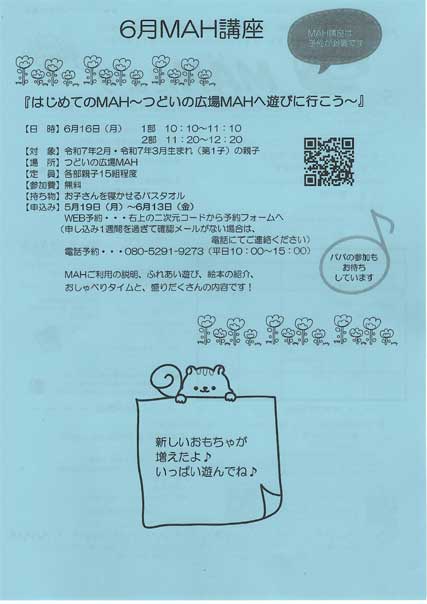 6月MAH講座
MAH講座は
予約が必要です
『はじめてのMAH～つどいの広場MAHへ遊びに行こう～』
【日　時】6月16日（月）　1部　10：10～11：10
2部　11：20～12：20
【対　象】令和7年2月・令和7年3月生まれ（第1子）の親子
【場　所】つどいの広場MAH
【定　員】各部親子15組程度
【参加費】無料
【持ち物】お子さんを寝かせるバスタオル
【申込み】5月19日（月）～6月13日（金）
WEB予約・・・右上の二次元コードから予約フォームへ
（申し込み1週間を過ぎて確認メールがない場合は、
電話にてご連絡ください）
電話予約・・・080-5291-9273（平日10：00～15：00）
パパの参加も
お待ち
しています
MAHご利用の説明、ふれあい遊び、絵本の紹介、
おしゃべりタイムと、盛りだくさんの内容です！
新しいおもちゃが
増えたよ♪
いっぱい遊んでね♪